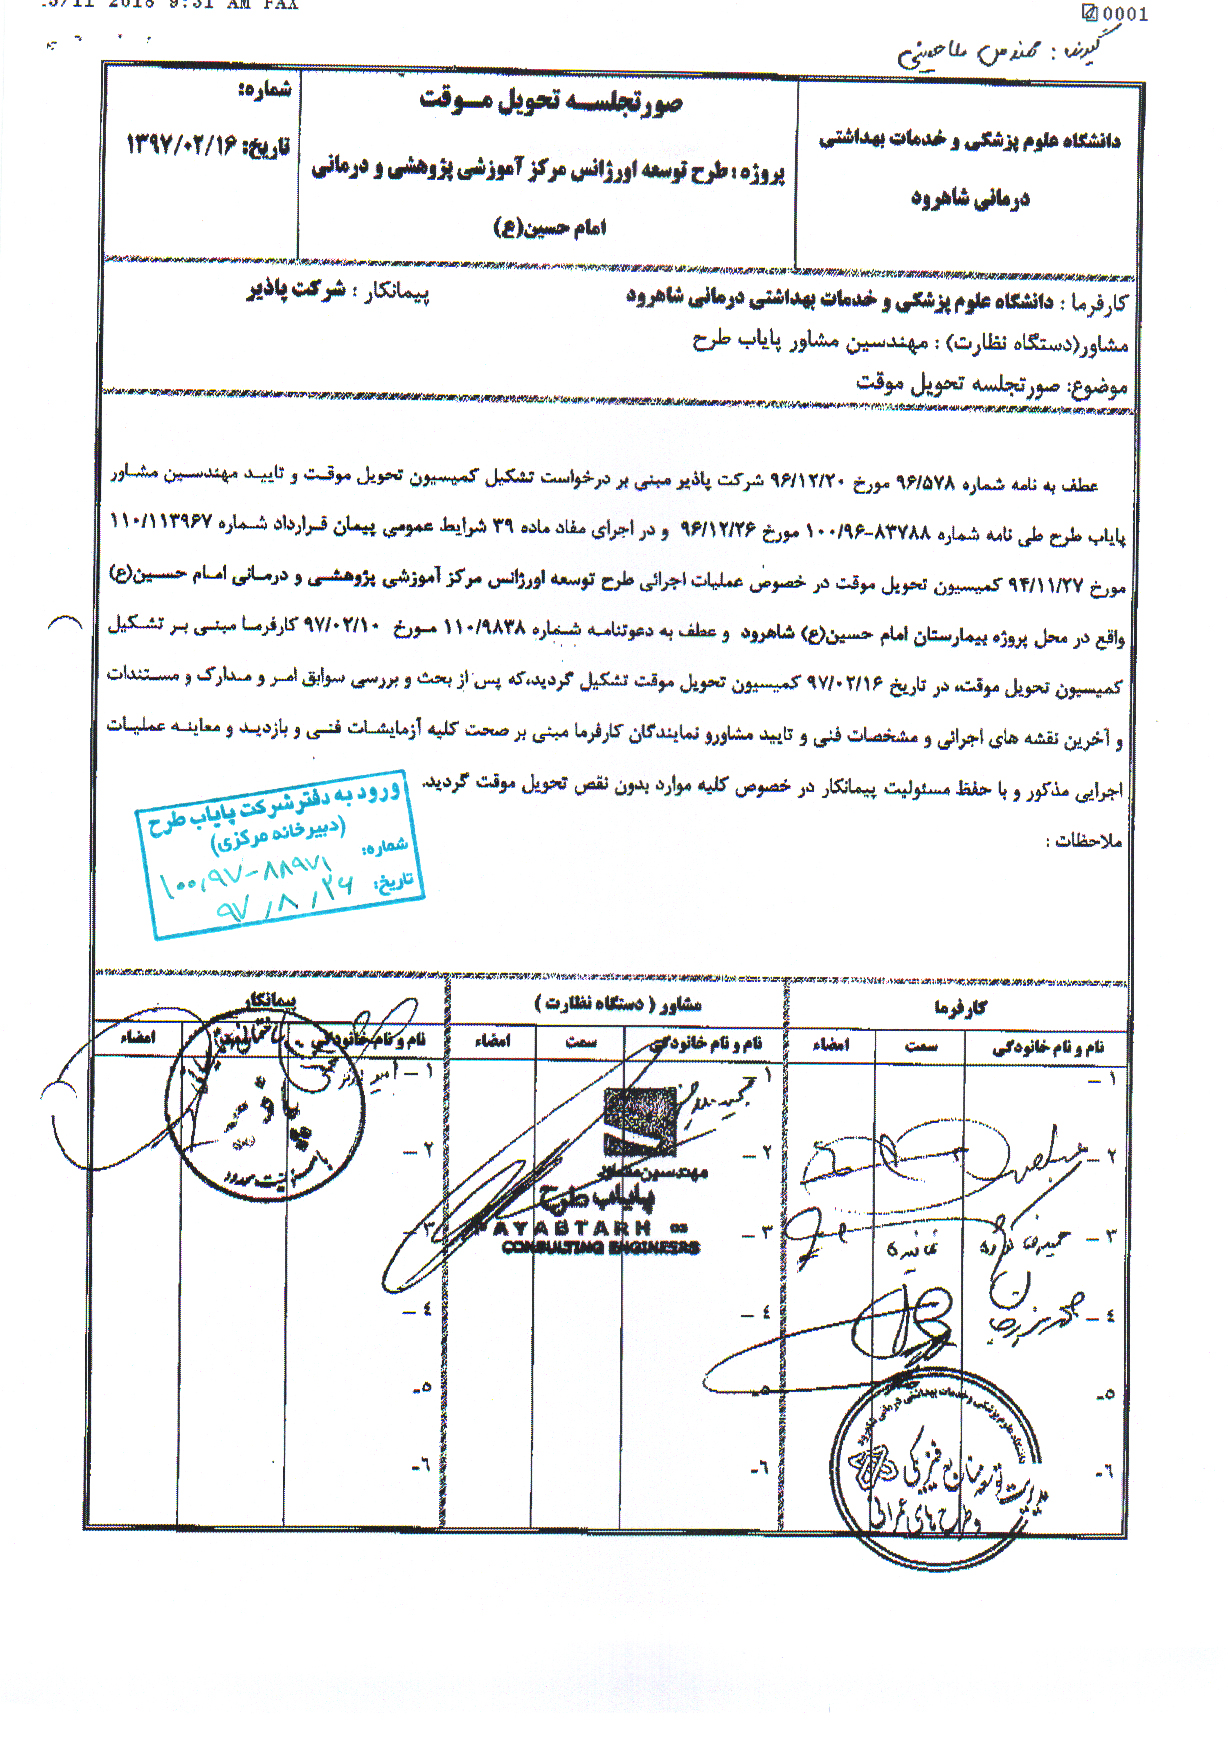 11 2018 9:31 AM FAX
0001
گیرنده : مهندس
دانشگاه علوم پزشکی و خدمات بهداشتی
درمانی شاهرود
صورتجلسه تحویل موقت
پروژه : طرح توسعه اورژانس مرکز آموزشی پژوهشی و درمانی
امام حسین(ع)
شماره:
تاریخ: ۱۳۹۷/۰۲/۱۶
کارفرما : دانشگاه علوم پزشکی و خدمات بهداشتی درمانی شاهرود
پیمانکار : شرکت پاذیر
مشاور(دستگاه نظارت) : مهندسین مشاور پایاب طرح
موضوع: صورتجلسه تحویل موقت
عطف به نامه شماره ۹۶/۵۷۸ مورخ ۹۶/۱۲/۲۰ شرکت پاذیر مبنی بر درخواست تشکیل کمیسیون تحویل موقت و تایید مهندسین مشاور
پایاب طرح طی نامه شماره ۸۳۷۸۸-۱۰۰/۹۶ مورخ ۹۶/۱۲/۲۶ و در اجرای مفاد ماده ۳۹ شرایط عمومی پیمان قرارداد شماره ۱۱۰/۱۱۳۹۶۷
مورخ ۹۴/۱۱/۲۷ کمیسیون تحویل موقت در خصوص عملیات اجرائی طرح توسعه اورژانس مرکز آموزشی پژوهشی و درمانی امام حسین(ع)
واقع در محل پروژه بیمارستان امام حسین(ع) شاهرود و عطف به دعوتنامه شماره ۱۱۰/۹۸۳۸ مورخ ۹۷/۰۲/۱۰ کارفرما مبنی بر تشکیل
کمیسیون تحویل موقت، در تاریخ ۹۷/۰۲/۱۶ کمیسیون تحویل موقت تشکیل گردید،که پس از بحث و بررسی سوابق امر و مدارک و مستندات
و آخرین نقشه های اجرائی و مشخصات فنی و تایید مشاورو نمایندگان کارفرما مبنی بر صحت کلیه آزمایشات فنی و بازدید و معاینه عملیات
اجرایی مذکور و با حفظ مسئولیت پیمانکار در خصوص کلیه موارد بدون نقص تحویل موقت گردید.
ملاحظات :
ورود به دفتر شرکت پایاب طرح
(دبیرخانه مرکزی)
شماره: ۱۰۰،۹۷-۸۸۹۷۱
تاریخ: ۹۷/۸/۲۶
کارفرما
مشاور ( دستگاه نظارت )
پیمانکار
نام و نام خانودگی
سمت
امضاء
نام و نام خانودگی
سمت
امضاء
نام و نام خانودگی
امضاء
۱ –
۱ –
۱ – امیر
۲ –
۲ –
۲ –
مهندسین مشاور
پایاب طرح
PAYABTARH co
CONSULTING ENGINEERS
۳ – حمیدرضا
نماینده
۳ –
۳ –
٤ –
٤ –
٤ –
۵-
۵-
۵-
۶-
۶-
۶-
دانشگاه علوم پزشکی و خدمات بهداشتی درمانی شاهرود
مدیریت توسعه منابع فیزیکی
و طرح های عمرانی